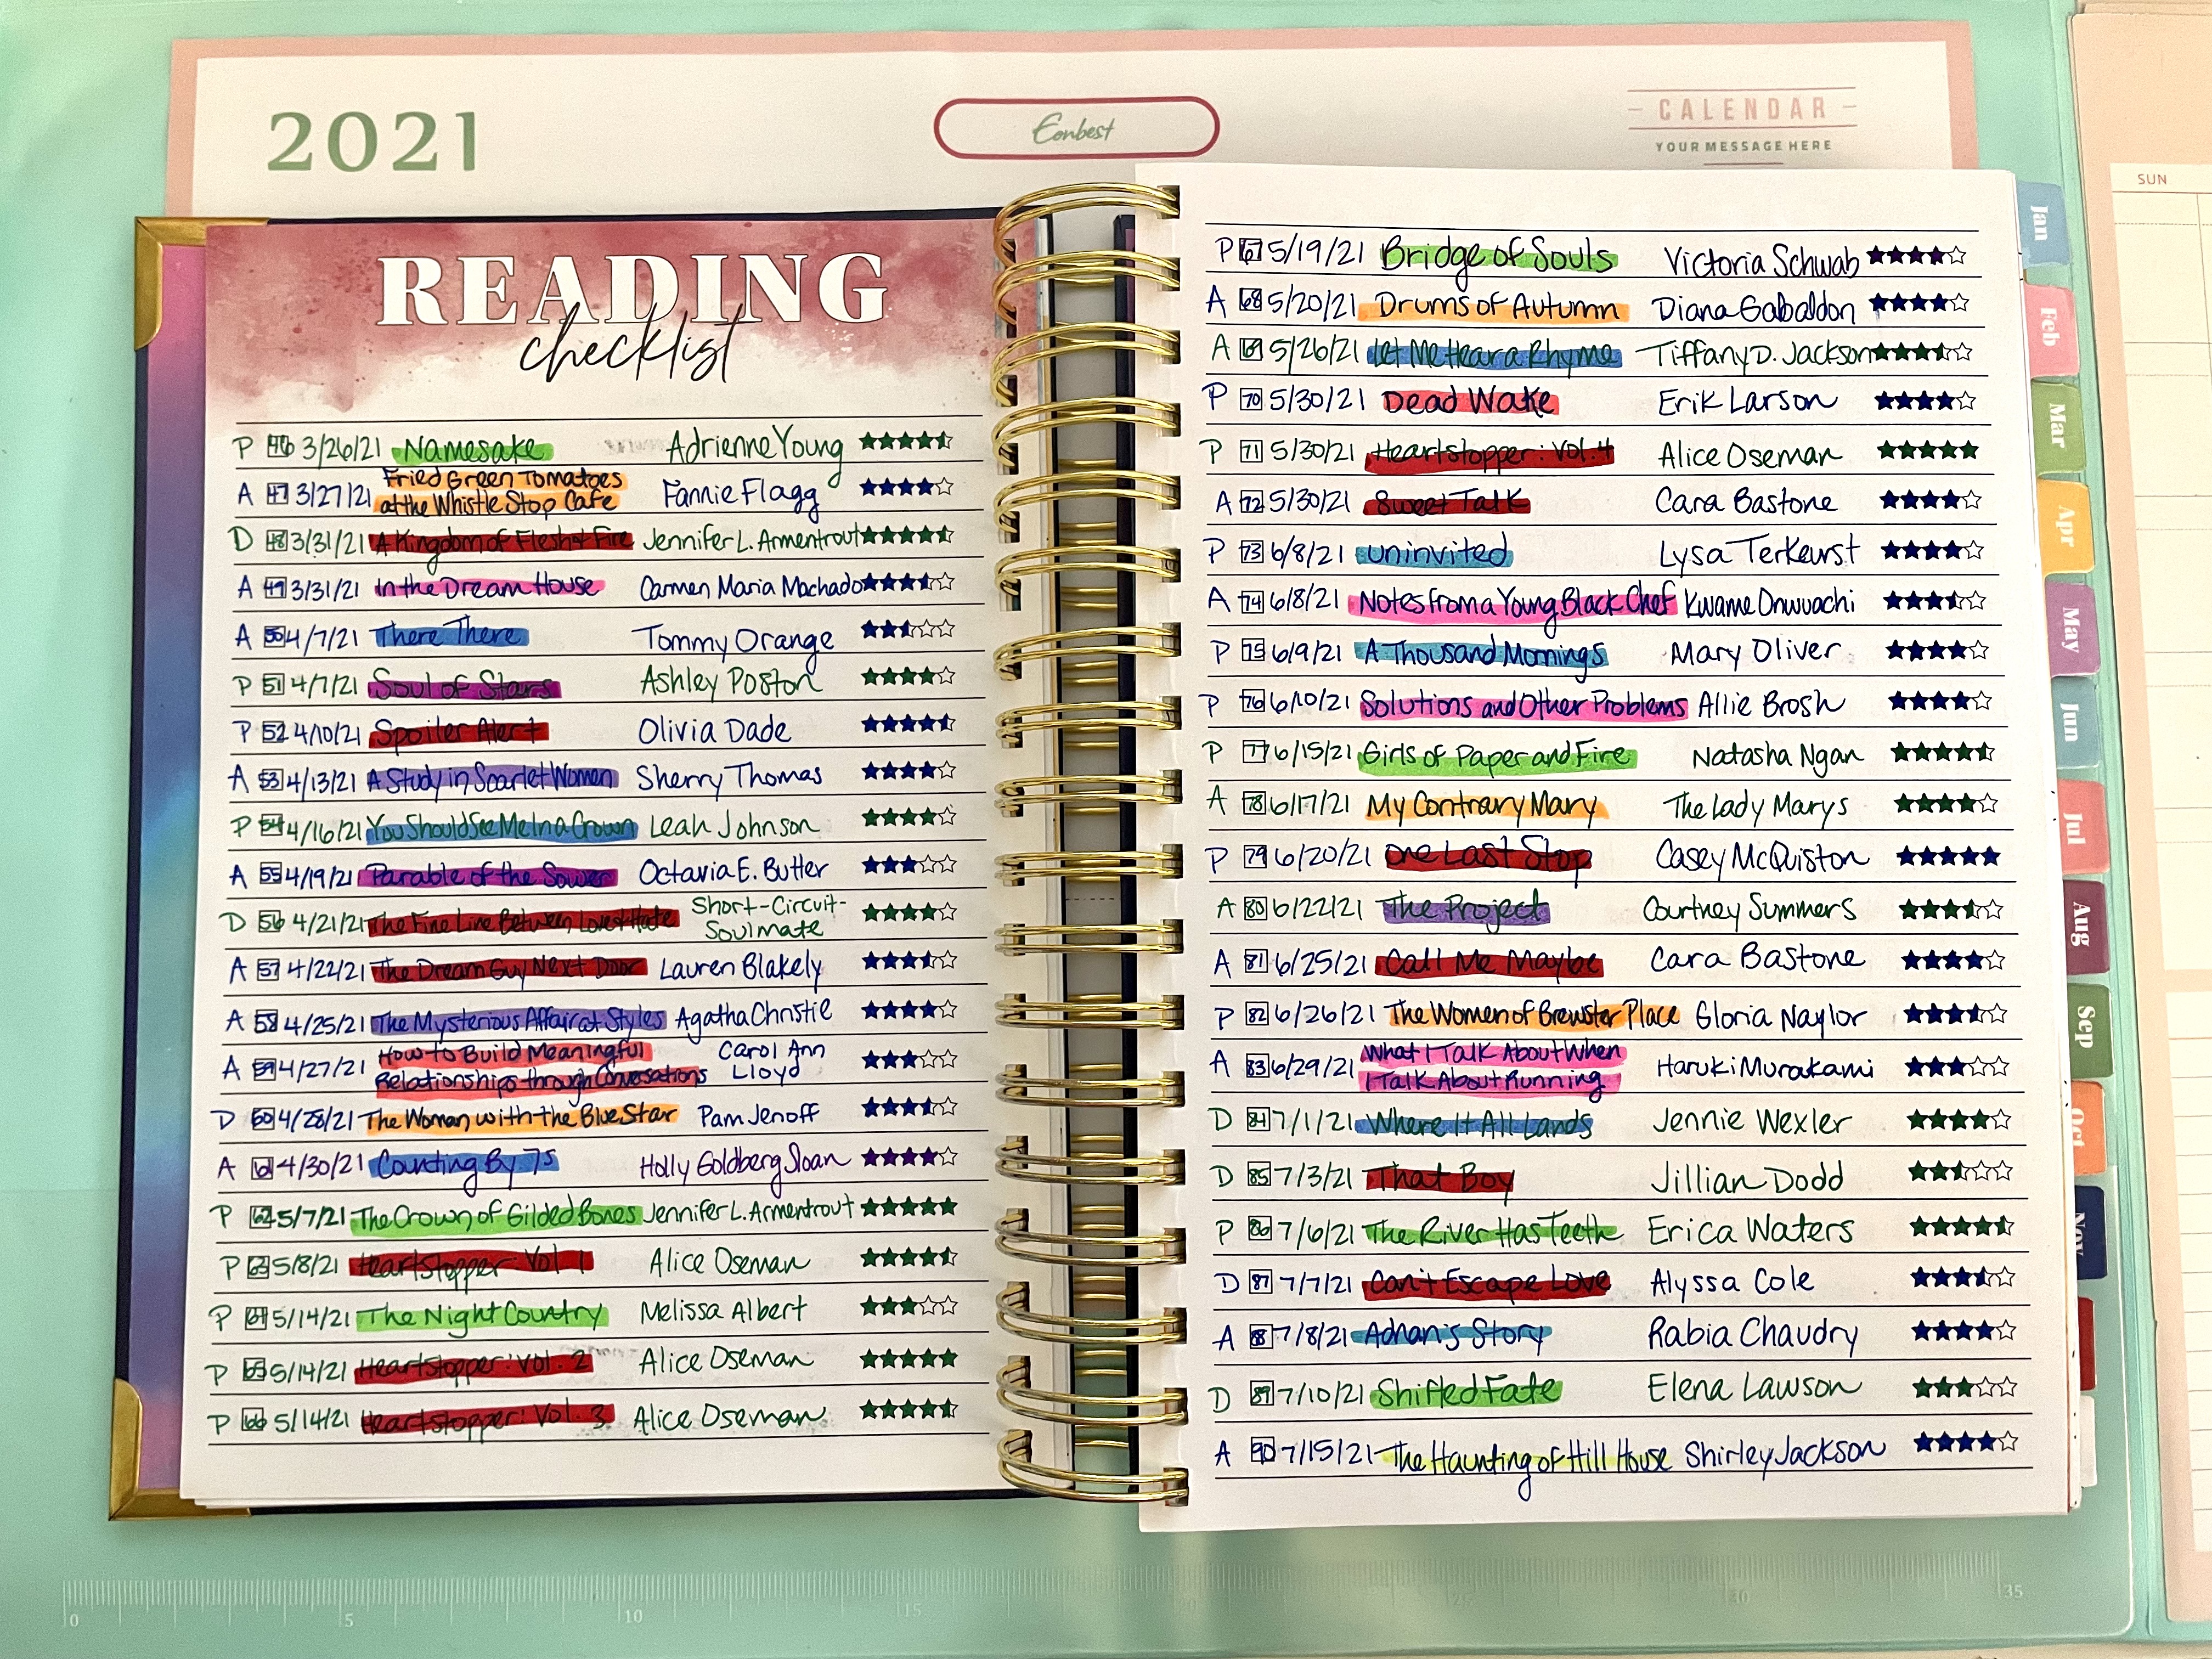 2021
Eonbest
CALENDAR
YOUR MESSAGE HERE
SUN
READING
checklist
P 46 3/26/21 Namesake Adrienne Young ★★★★⯪
A 47 3/27/21 Fried Green Tomatoes
at the Whistle Stop Cafe Fannie Flagg ★★★★☆
D 48 3/31/21 A Kingdom of Flesh & Fire Jennifer L. Armentrout ★★★★⯪
A 49 3/31/21 In the Dream House Carmen Maria Machado ★★★⯪☆
A 50 4/7/21 There There Tommy Orange ★★⯪☆☆
P 51 4/7/21 Soul of Stars Ashley Poston ★★★★☆
P 52 4/10/21 Spoiler Alert Olivia Dade ★★★★⯪
A 53 4/13/21 A Study in Scarlet Women Sherry Thomas ★★★★☆
P 54 4/16/21 You Should See Me In a Crown Leah Johnson ★★★★☆
A 55 4/19/21 Parable of the Sower Octavia E. Butler ★★★☆☆
D 56 4/21/21 The Fine Line Between Love & Hate Short-Circuit-
Soulmate ★★★★☆
A 57 4/22/21 The Dream Guy Next Door Lauren Blakely ★★★⯪☆
A 58 4/25/21 The Mysterious Affair at Styles Agatha Christie ★★★★☆
A 59 4/27/21 How to Build Meaningful Carol Ann
Relationships through Conversations Lloyd ★★★☆☆
D 60 4/28/21 The Woman with the Blue Star Pam Jenoff ★★★⯪☆
A 61 4/30/21 Counting By 7s Holly Goldberg Sloan ★★★★☆
P 62 5/7/21 The Crown of Gilded Bones Jennifer L. Armentrout ★★★★★
P 63 5/8/21 Heartstopper: Vol. 1 Alice Oseman ★★★★⯪
P 64 5/14/21 The Night Country Melissa Albert ★★★☆☆
P 65 5/14/21 Heartstopper: Vol. 2 Alice Oseman ★★★★★
P 66 5/14/21 Heartstopper: Vol. 3 Alice Oseman ★★★★⯪
P 67 5/19/21 Bridge of Souls Victoria Schwab ★★★★☆
A 68 5/20/21 Drums of Autumn Diana Gabaldon ★★★★☆
A 69 5/26/21 Let Me Hear a Rhyme Tiffany D. Jackson ★★★⯪☆
P 70 5/30/21 Dead Wake Erik Larson ★★★★☆
P 71 5/30/21 Heartstopper: Vol. 4 Alice Oseman ★★★★★
A 72 5/30/21 Sweet Talk Cara Bastone ★★★★☆
P 73 6/8/21 Uninvited Lysa TerKeurst ★★★★☆
A 74 6/8/21 Notes from a Young Black Chef Kwame Onwuachi ★★★⯪☆
P 75 6/9/21 A Thousand Mornings Mary Oliver ★★★★☆
P 76 6/10/21 Solutions and Other Problems Allie Brosh ★★★★☆
P 77 6/15/21 Girls of Paper and Fire Natasha Ngan ★★★★⯪
A 78 6/17/21 My Contrary Mary The Lady Marys ★★★★☆
P 79 6/20/21 One Last Stop Casey McQuiston ★★★★★
A 80 6/22/21 The Project Courtney Summers ★★★⯪☆
A 81 6/25/21 Call Me Maybe Cara Bastone ★★★★☆
P 82 6/26/21 The Women of Brewster Place Gloria Naylor ★★★⯪☆
A 83 6/29/21 What I Talk About When
I Talk About Running Haruki Murakami ★★★☆☆
D 84 7/1/21 Where It All Lands Jennie Wexler ★★★★☆
D 85 7/3/21 That Boy Jillian Dodd ★★⯪☆☆
P 86 7/6/21 The River Has Teeth Erica Waters ★★★★⯪
D 87 7/7/21 Can't Escape Love Alyssa Cole ★★★⯪☆
A 88 7/8/21 Adnan's Story Rabia Chaudry ★★★★☆
D 89 7/10/21 Shifted Fate Elena Lawson ★★★☆☆
A 90 7/15/21 The Haunting of Hill House Shirley Jackson ★★★★☆
Jan
Feb
Mar
Apr
May
Jun
Jul
Aug
Sep
Oct
Nov
0 5 10 15 20 25 30 35